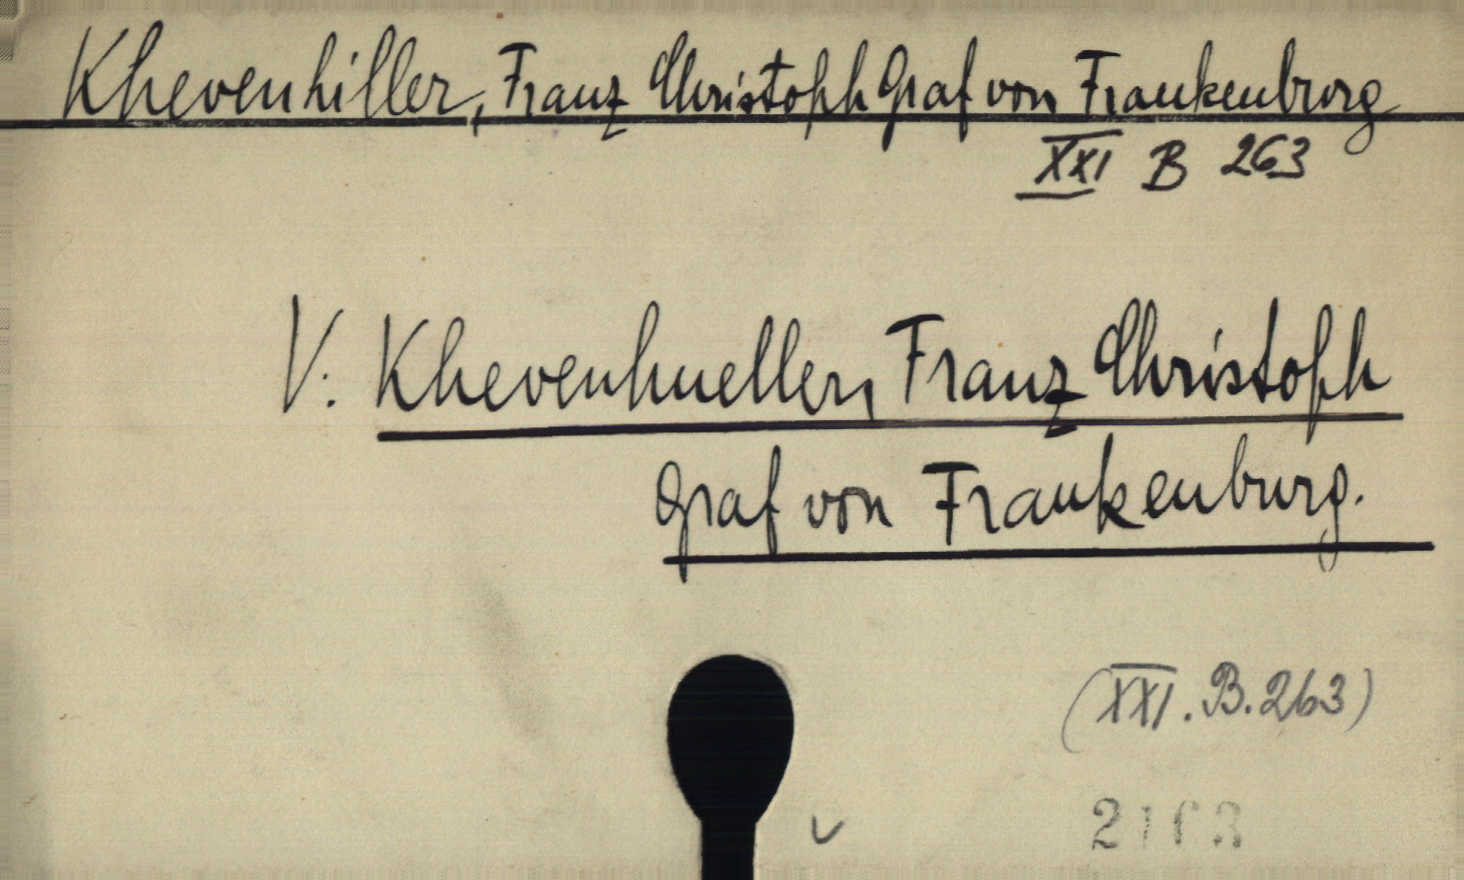 Khevenhiller, Franz Christoph Graf von Frankenburg
XXI B 263
V. Khevenhueller, Franz Christoph
Graf von Frankenburg.
(XXI. B. 263)